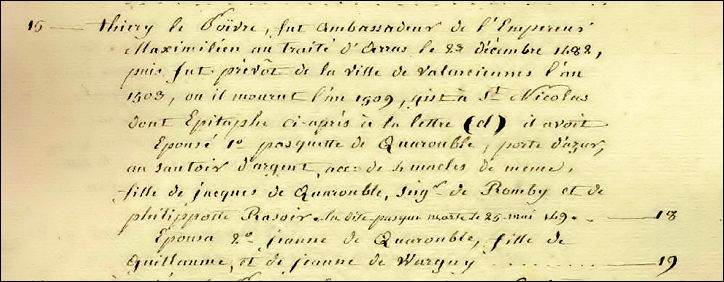 15 — thiery le Poivre, fut ambassadeur de l'Empereur
Maximilien au traité d'Arras le 23 décembre 1482,
puis fut prévôt de la ville de Valenciennes l'an
1503, ou il mourut l'an 1509, gist à St Nicolas
dont Epitaphe ci-après à la lettre (d) il avoit
Epousé 1º pasquette de Quarouble, porte d'azur,
au sautoir d'argent, acc: de 4 macles de meme,
fille de jacques de Quarouble, Seigr de Romby et de
philippotte Rasoir. la dite pasque morte le 25 mai 149. — 18
Epousa 2º jeanne de Quarouble, fille de
Guillaume, et de jeanne de Warguy ......... 19